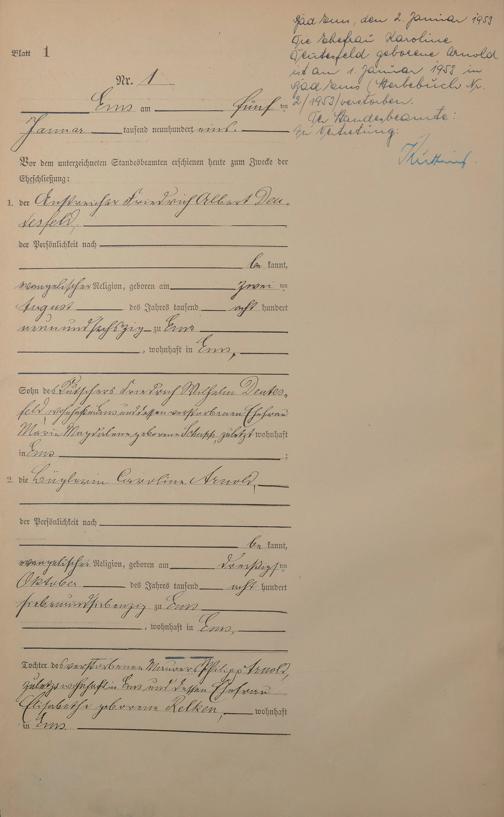 Bad Ems, den 2. Januar 1953
Die Ehefrau Karoline
Deutesfeld geborene Arnold
ist am 1. Januar 1953 in
Bad Ems (Sterbebuch Nr.
2/1953) verstorben.
Der Standesbeamte:
In Vertretung:
Blatt 1
Nr. 1
Ems am fünf ten
Januar tausend neunhundert eins.
Vor dem unterzeichneten Standesbeamten erschienen heute zum Zwecke der
Eheschließung:
1. der Anstreicher Friedrich Albert Deu-
tesfeld,
der Persönlichkeit nach
be kannt,
evangelischer Religion, geboren am zwei ten
August des Jahres tausend acht hundert
neunundsechszig zu Ems
, wohnhaft in Ems,
Sohn des Kutschers Friedrich Wilhelm Deutes-
feld, wohnhaft in Ems und dessen verstorbenen Ehefrau
Maria Magdalene geborene zuletzt wohnhaft
in Ems ;
2. die Büglerin Caroline Arnold,
der Persönlichkeit nach
be kannt,
evangelischer Religion, geboren am dreißigs ten
Oktober des Jahres tausend acht hundert
siebenundsiebenzig zu Ems
, wohnhaft in Ems,
Tochter des verstorbenen Maurers Philipp Arnold,
zuletzt wohnhaft in Ems und dessen Ehefrau
Elisabethe geborene Relken, wohnhaft
in Ems